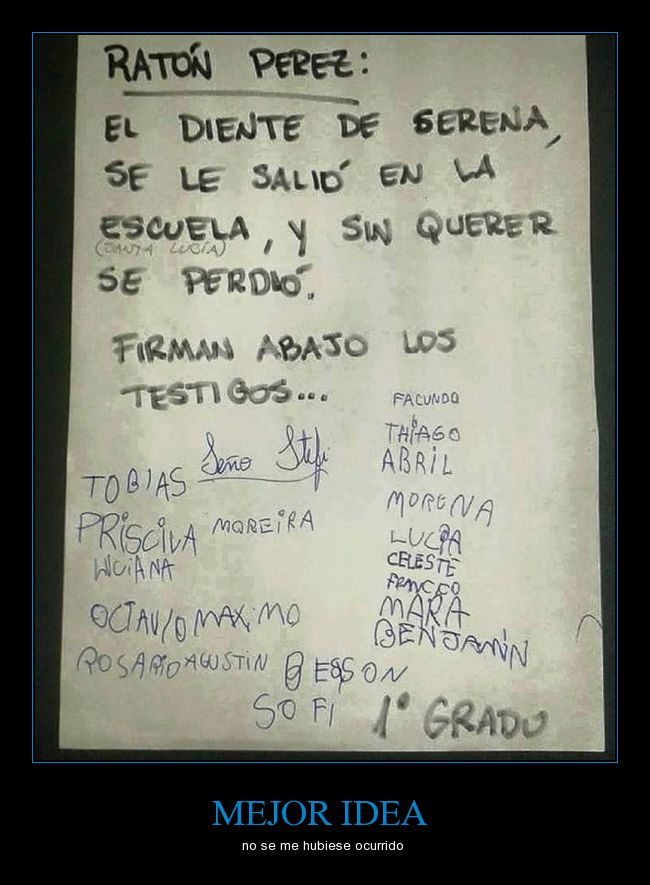 RATÓN PEREZ:
EL DIENTE DE SERENA,
SE LE SALIÓ EN LA
ESCUELA, Y SIN QUERER
(SANTA LUCÍA)
SE PERDIÓ.
FIRMAN ABAJO LOS
TESTIGOS...
FACUNDO
THIAGO
ABRIL
Seño Stefi
TOBIAS
MORENA
PRISCILA MOREIRA
LUCIA
LUCIANA
CELESTE
FRANCCO
OCTAVIO MAXIMO
MARA
BENJAMIN
ROSARIO AGUSTIN
SOFI
1° GRADO
MEJOR IDEA
no se me hubiese ocurrido